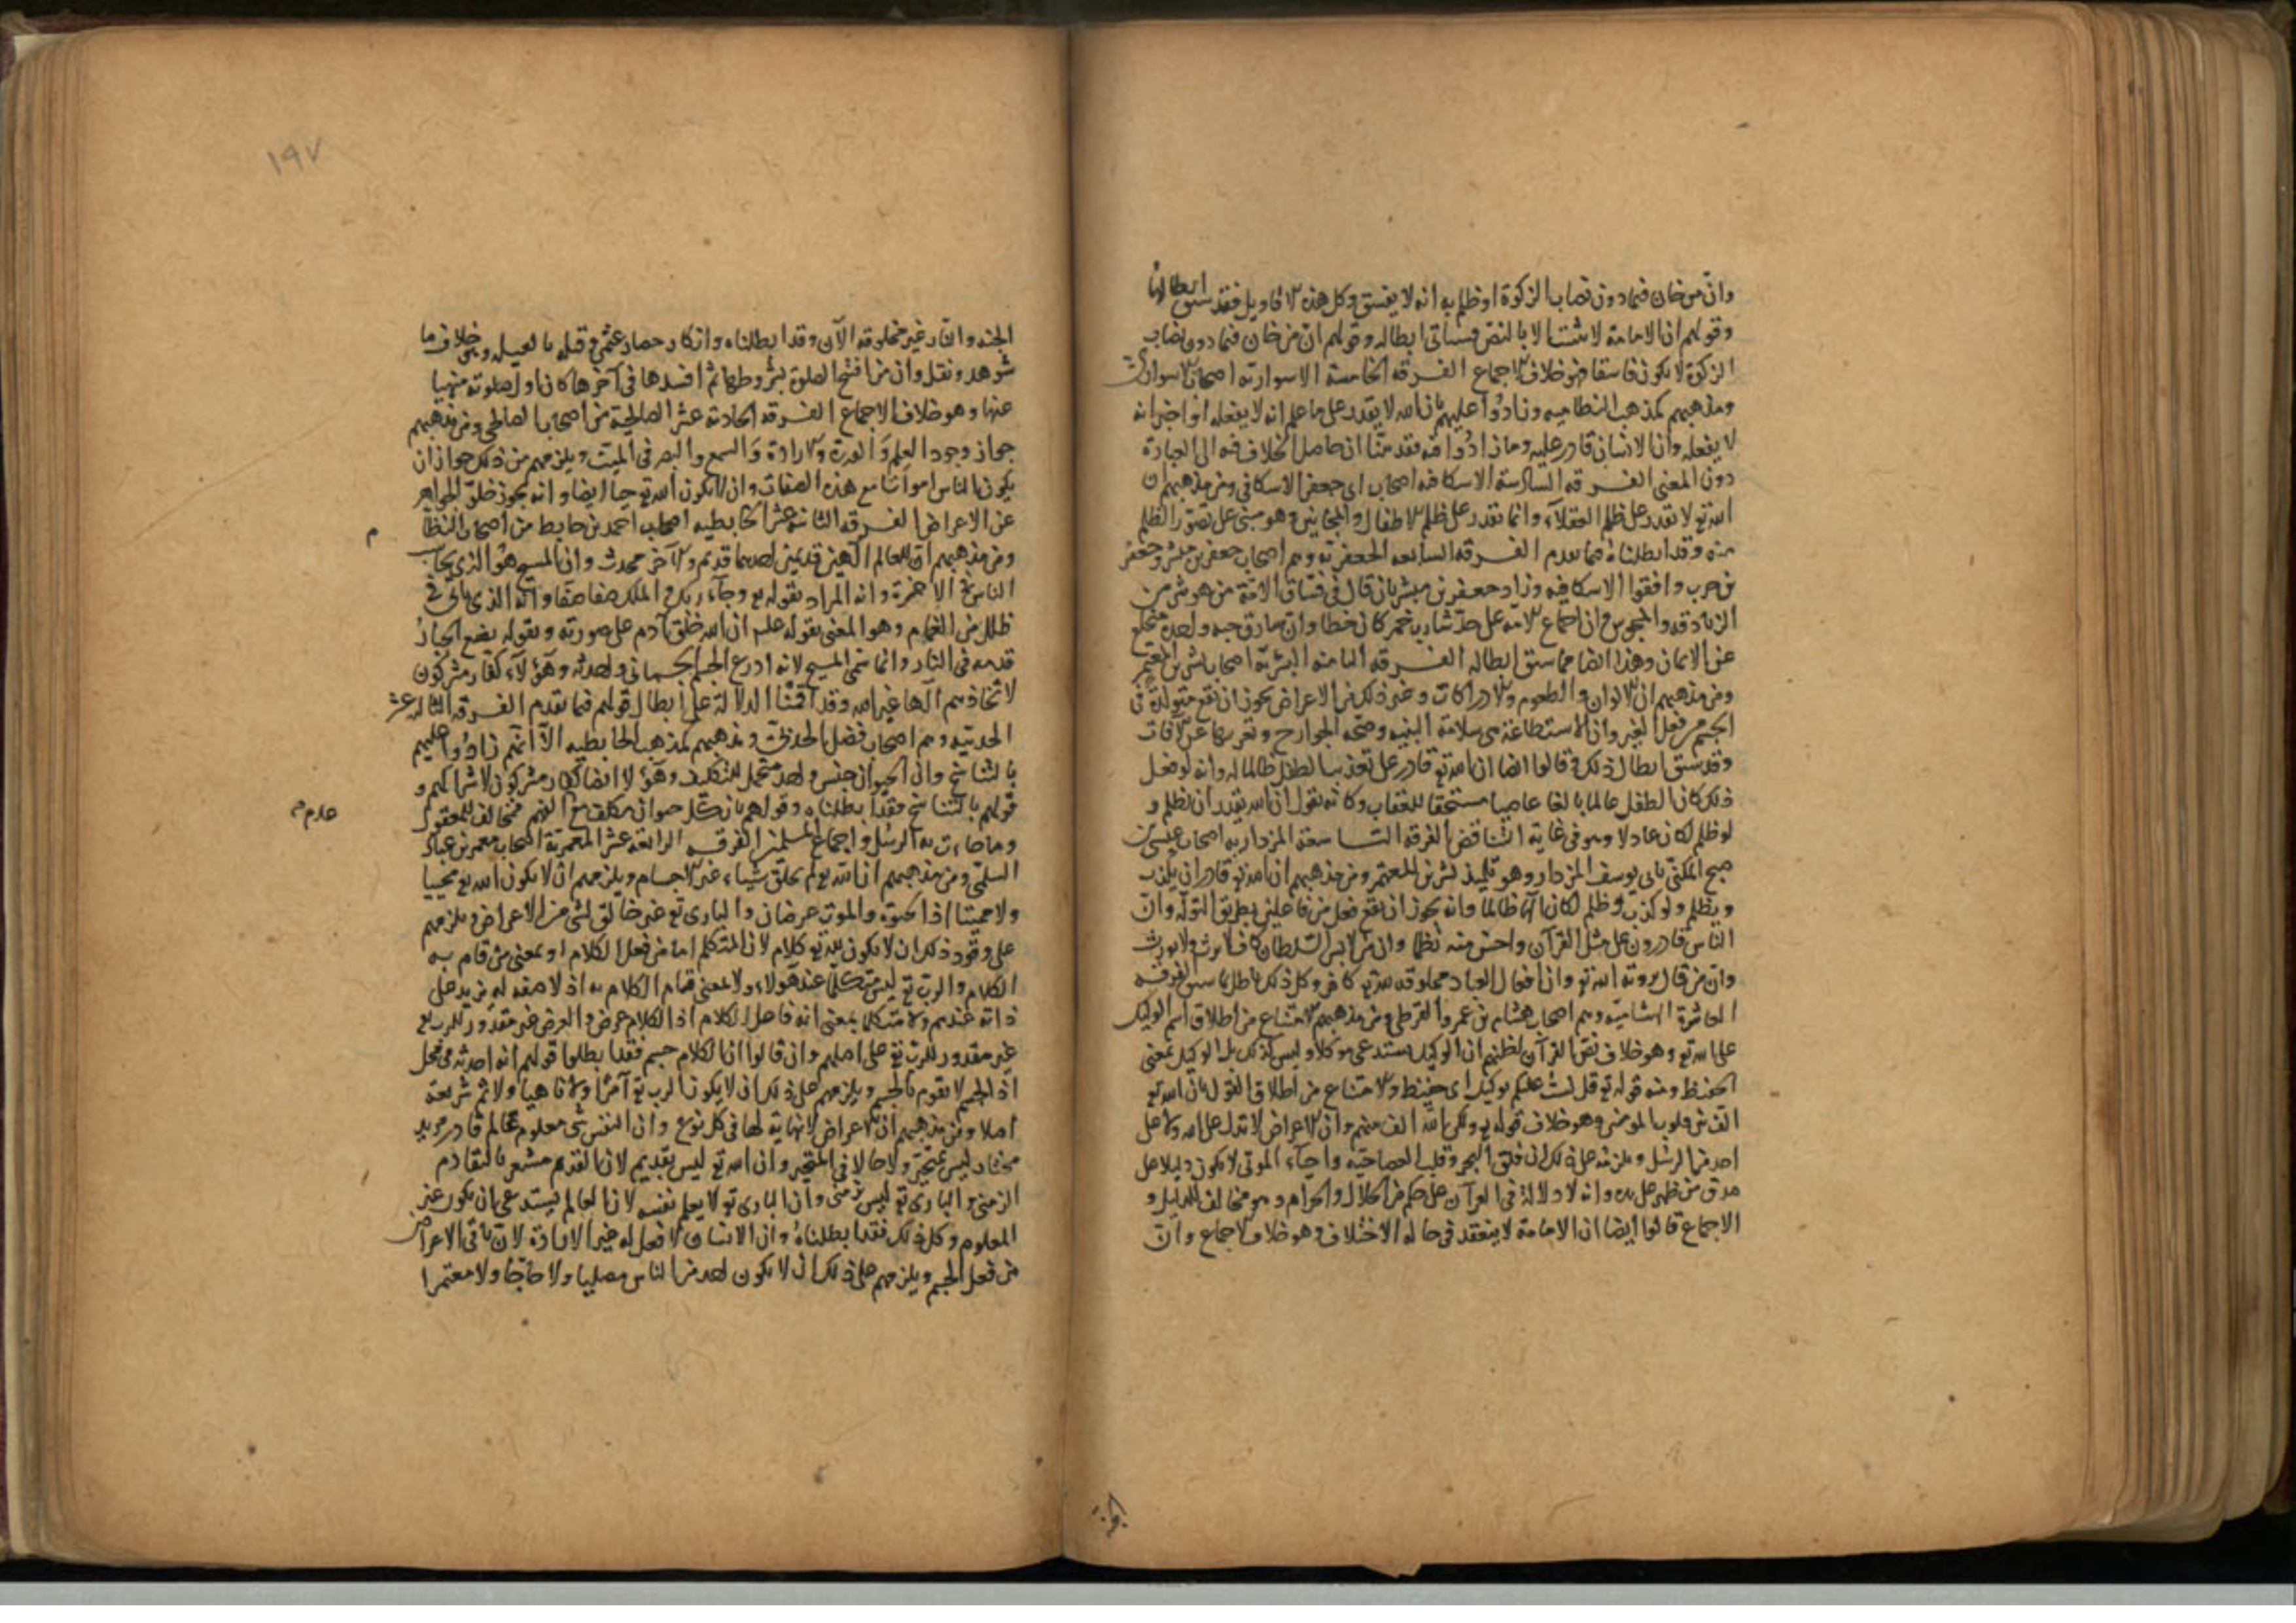 وان من خان فيما دون نصاب الزكوة او ظلم به انه لا يفسق وكل هذه الاقاويل فقد سبق ابطالها
وقولهم ان الامامة لا تثبت الا بالنص فسياتى ابطاله وقولهم ان من خان فيما دون نصاب
الزكوة لا يكون فاسقا فهو خلاف الاجماع الفرقه الخامسة الاسوارية اصحاب الاسوارى
ومذهبهم كمذهب النظاميه وزادوا عليهم بان الله لا يقدر على ما علم انه لا يفعله او اخبر انه
لا يفعله وان الانسان قادر عليه وما زادوا فيه فقد بينا ان حاصل الخلاف فيه الى العبارة
دون المعنى الفرقه السادسة الاسكافيه اصحاب ابى جعفر الاسكافى ومن مذهبهم ان
الله تع لا يقدر على ظلم العقلاء وانما يقدر على ظلم الاطفال والمجانين وهو مبنى على تصور الظلم
منه وقد ابطلناه فيما تقدم الفرقه السابعه الجعفريه وهم اصحاب جعفر بن مبشر وجعفر
بن حرب وافقوا الاسكافيه وزاد جعفر بن مبشر بان قال فى فساق الامة من هو شر من
الزنادقه والمجوس وان اجماع الامه على حد شارب خمر كان خطا وان سارق حبه واحدة منخلع
عن الايمان وهذا ايضا مما سبق ابطاله الفرقه الثامنه البشريه اصحاب بشر بن المعتمر
ومن مذهبهم ان الالوان والطعوم والادراكات وغير ذلك من الاعراض يجوز ان تقع متولدة فى
الجسم من فعل الغير وان الاستطاعة هى سلامة البنيه وصحه الجوارح وتعريها عن الافات
وقد سبق ابطال ذلك وقالوا ايضا ان الله تع قادر على تعذيب الطفل ظالما له وانه لو فعل
ذلك كان الطفل عالما بالغا عاصيا مستحقا للعقاب وكانه يقول ان الله يقدر ان يظلم و
لو ظلم لكان عادلا وهو فى غاية التناقض الفرقه التاسعة المزداريه اصحاب عيسى بن
صبيح المكنى بابى يوسف المزدار وهو تلميذ بشر بن المعتمر ومن مذهبهم ان الله تع قادر ان يكذب
ويظلم ولو كذب وظلم لكان الها ظالما وانه يجوز ان يقع فعل من فاعلين بطريق التولد وان
الناس قادرون على مثل القرآن واحسن منه نظما وان من لابس السلطان كافر لا يرث ولا يورث
وان من قال برؤية الله تع وان افعال العباد مخلوقه لله تع كافر وكل ذلك باطل بما سبق الفرقه
العاشرة الهشاميه وهم اصحاب هشام بن عمرو الفوطى ومن مذهبهم الامتناع من اطلاق اسم الوكيل
على الله تع وهو خلاف نص القرآن لظنهم ان الوكيل يستدعى موكلا وليس كذلك بل الوكيل بمعنى
الحفيظ ومنه قوله تع قل لست عليكم بوكيل اى حفيظ والامتناع من اطلاق القول بان الله تع
الف بين قلوب المومنين وهو خلاف قوله تع ولكن الله الف بينهم وان الاعراض لا تدل على الله ولا على
احد من الرسل ويلزمه على ذلك ان فلق البحر وقلب العصا حيه واحياء الموتى لا يكون دليلا على
صدق من ظهر على يده وانه لا دلالة فى القرآن على حكم من الحلال والحرام وهو مخالف للدليل و
الاجماع قالوا ايضا ان الامامة لا ينعقد فى حاله الاختلاف وهو خلاف الاجماع وان
الجنة
١٩٧
الجنه والنار غير مخلوقه الآن وقد ابطلناه وانكار حصار عثمن وقتله بالغيله وهو خلاف ما
شوهد ونقل وان من افتتح الصلوة بشروطها ثم افسدها فى آخرها كان اول صلوته منهيا
عنها وهو خلاف الاجماع الفرقه الحادية عشر الصالحية من اصحاب الصالحى ومن مذهبهم
جواز وجود العلم والقدرة والارادة والسمع والبصر فى الميت ويلزمهم من ذلك جواز ان
يكون الناس امواتا مع هذه الصفات وان لا يكون الله تع حيا ايضا وانه يجوز خلو الجواهر
عن الاعراض الفرقه الثانيه عشر الحابطيه اصحاب احمد بن حابط من اصحاب النظا
م
ومن مذهبهم ان للعالم الهين قديمين احدهما قديم والآخر محدث وان المسيح هو الذى يحاسب
الناس فى الاخرة وانه المراد بقوله تع وجاء ربك والملك صفا صفا وانه الذى ياتى فى
ظلل من الغمام وهو المعنى بقوله علم ان الله خلق آدم على صورته وبقوله يضع الجبار
قدمه فى النار وانما سمى المسيح لانه ادرع الجسم الجسمانى واحدثه وهؤلاء كفار مشركون
لاتخاذهم الها غير الله وقد اقمنا الدلالة على ابطال قولهم فيما تقدم الفرقه الثالثه عشر
الحدثيه وهم اصحاب فضل الحدثى ومذهبهم كمذهب الحابطيه الا انهم زادوا عليهم
بالتناسخ وان الحيوان جنس واحد متحمل للتكليف وهؤلا ايضا كفار مشركون لاشراكهم و
قولهم بالتناسخ فقد ابطلناه وقولهم بان كل حيوان مكلف مع الفهم مخالف للمعقول
عدم م
وما جاءت به الرسل واجماع المسلمين الفرقه الرابعة عشر المعمرية اصحاب معمر بن عباد
السلمى ومن مذهبهم ان الله تع لم يخلق شياء غير الاجسام ويلزمهم ان لا يكون الله تع محييا
ولا مميتا اذ الحيوة والموت عرضان والبارى تع غير خالق لشى من الاعراض ويلزمهم
على وقود ذلك ان لا يكون لله تع كلام لان المتكلم اما من فعل الكلام او بمعنى من قام به
الكلام والرب تع ليس متكلما عند هولاء ولا بمعنى قيام الكلام به اذ لا صفه له تزيد على
ذاته عندهم ولا متكلما بمعنى انه فاعل للكلام اذ الكلام عرض والعرض غير مقدور للرب تع
غير مقدور للرب تع على اصلهم وان قالوا ان الكلام جسم فقد ابطلوا قولهم انه احدثه فى محل
اذ الجسم لا يقوم بالجسم ويلزمهم على ذلك ان لا يكون الرب تع آمرا ولا ناهيا ولا ثم شريعة
اصلا ومن مذهبهم ان الاعراض لا نهاية لها فى كل نوع وان النفس شى معلوم عالم قادر مريد
مختار ليس بمتحيز ولا حالا فى المتحيز وان الله تع ليس بقديم لان القدم مشعر بالتقادم
الزمنى والبارى تع ليس بزمنى وان البارى تع لا يعلم نفسه لان العالم يستدعى ان يكون غير
المعلوم وكل ذلك فقد ابطلناه وان الانسان لا فعل له غير الارادة لان باقى الاعراض
من فعل الجسم ويلزمهم على ذلك ان لا يكون احد من الناس مصليا ولا حاجا ولا معتمرا